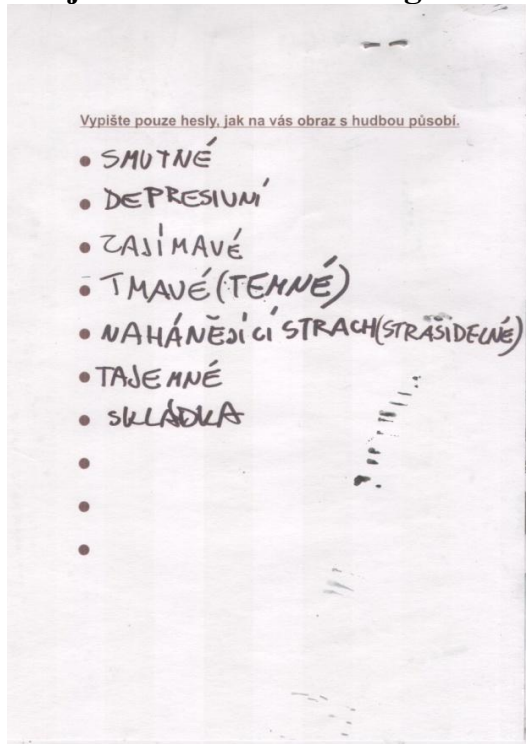 Vypište pouze hesly, jak na vás obraz s hudbou působí.
• SMUTNÉ
• DEPRESIVNÍ
• ZAJÍMAVÉ
• TMAVÉ (TEMNÉ)
• NAHÁNĚJÍCÍ STRACH (STRAŠIDELNÉ)
• TAJEMNÉ
• SKLÁDKA
•
•
•